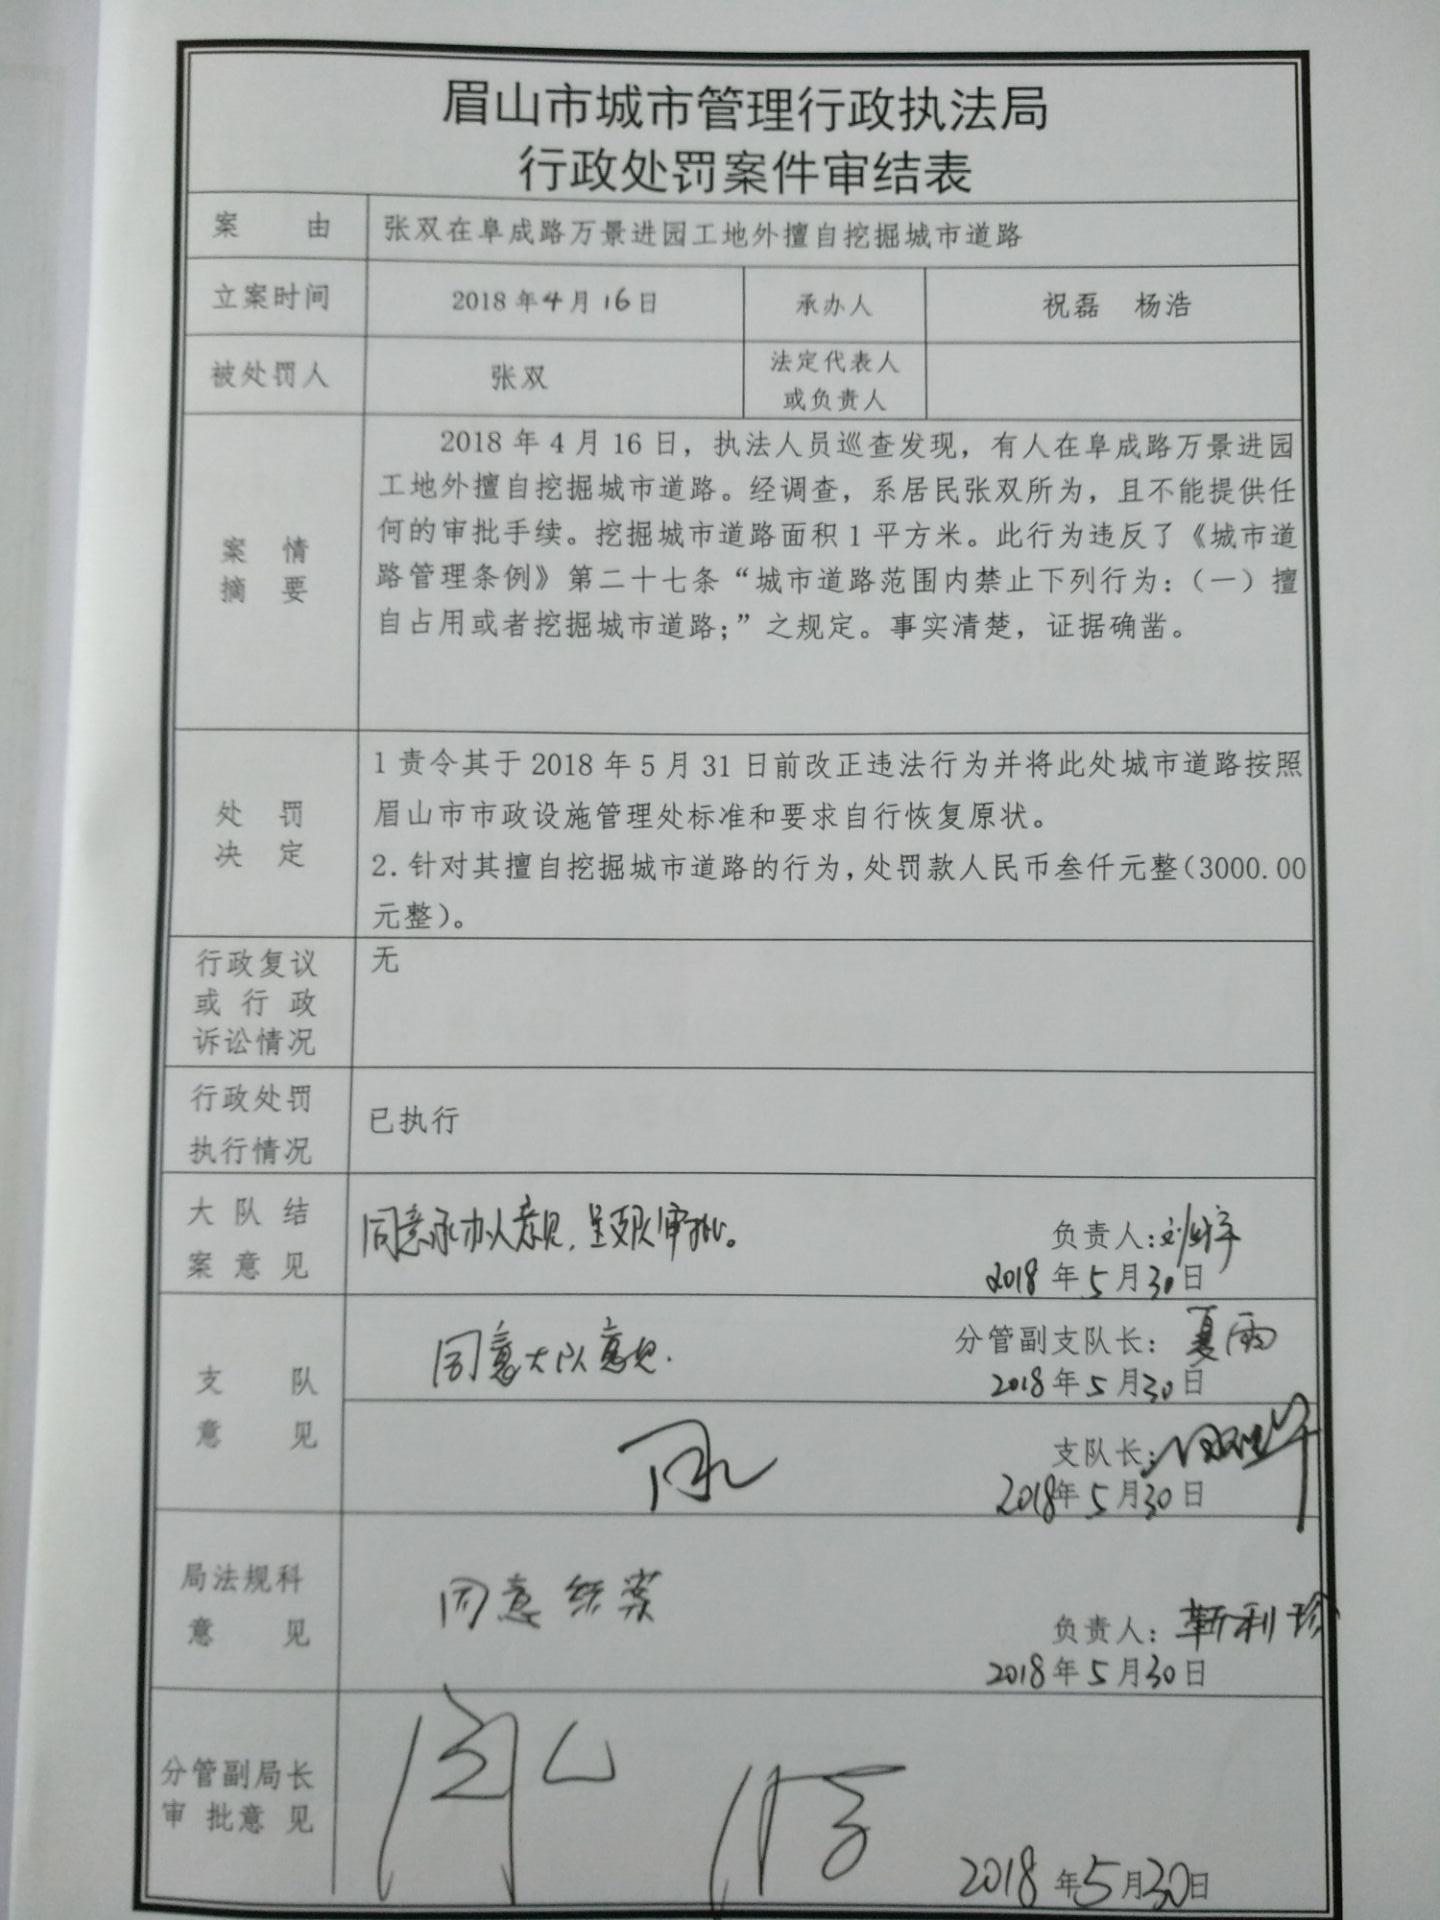 眉山市城市管理行政执法局
行政处罚案件审结表
案 由 张双在阜成路万景进园工地外擅自挖掘城市道路
立案时间 2018年4月16日 承办人 祝磊 杨浩
被处罚人 张双 法定代表人
或负责人
案 情
摘 要
2018年4月16日，执法人员巡查发现，有人在阜成路万景进园
工地外擅自挖掘城市道路。经调查，系居民张双所为，且不能提供任
何的审批手续。挖掘城市道路面积1平方米。此行为违反了《城市道
路管理条例》第二十七条“城市道路范围内禁止下列行为：（一）擅
自占用或者挖掘城市道路；”之规定。事实清楚，证据确凿。
处 罚
决 定
1责令其于2018年5月31日前改正违法行为并将此处城市道路按照
眉山市市政设施管理处标准和要求自行恢复原状。
2.针对其擅自挖掘城市道路的行为，处罚款人民币叁仟元整（3000.00
元整）。
行政复议
或行政
诉讼情况
无
行政处罚
执行情况
已执行
大队结
案意见
同意承办人意见，呈支队审批。
负责人：
2018年5月30日
支 队
意 见
同意大队意见.
分管副支队长：夏雨
2018年5月30日
支队长：
2018年5月30日
局法规科
意 见
同意结案
负责人：靳利珍
2018年5月30日
分管副局长
审批意见
2018年5月30日